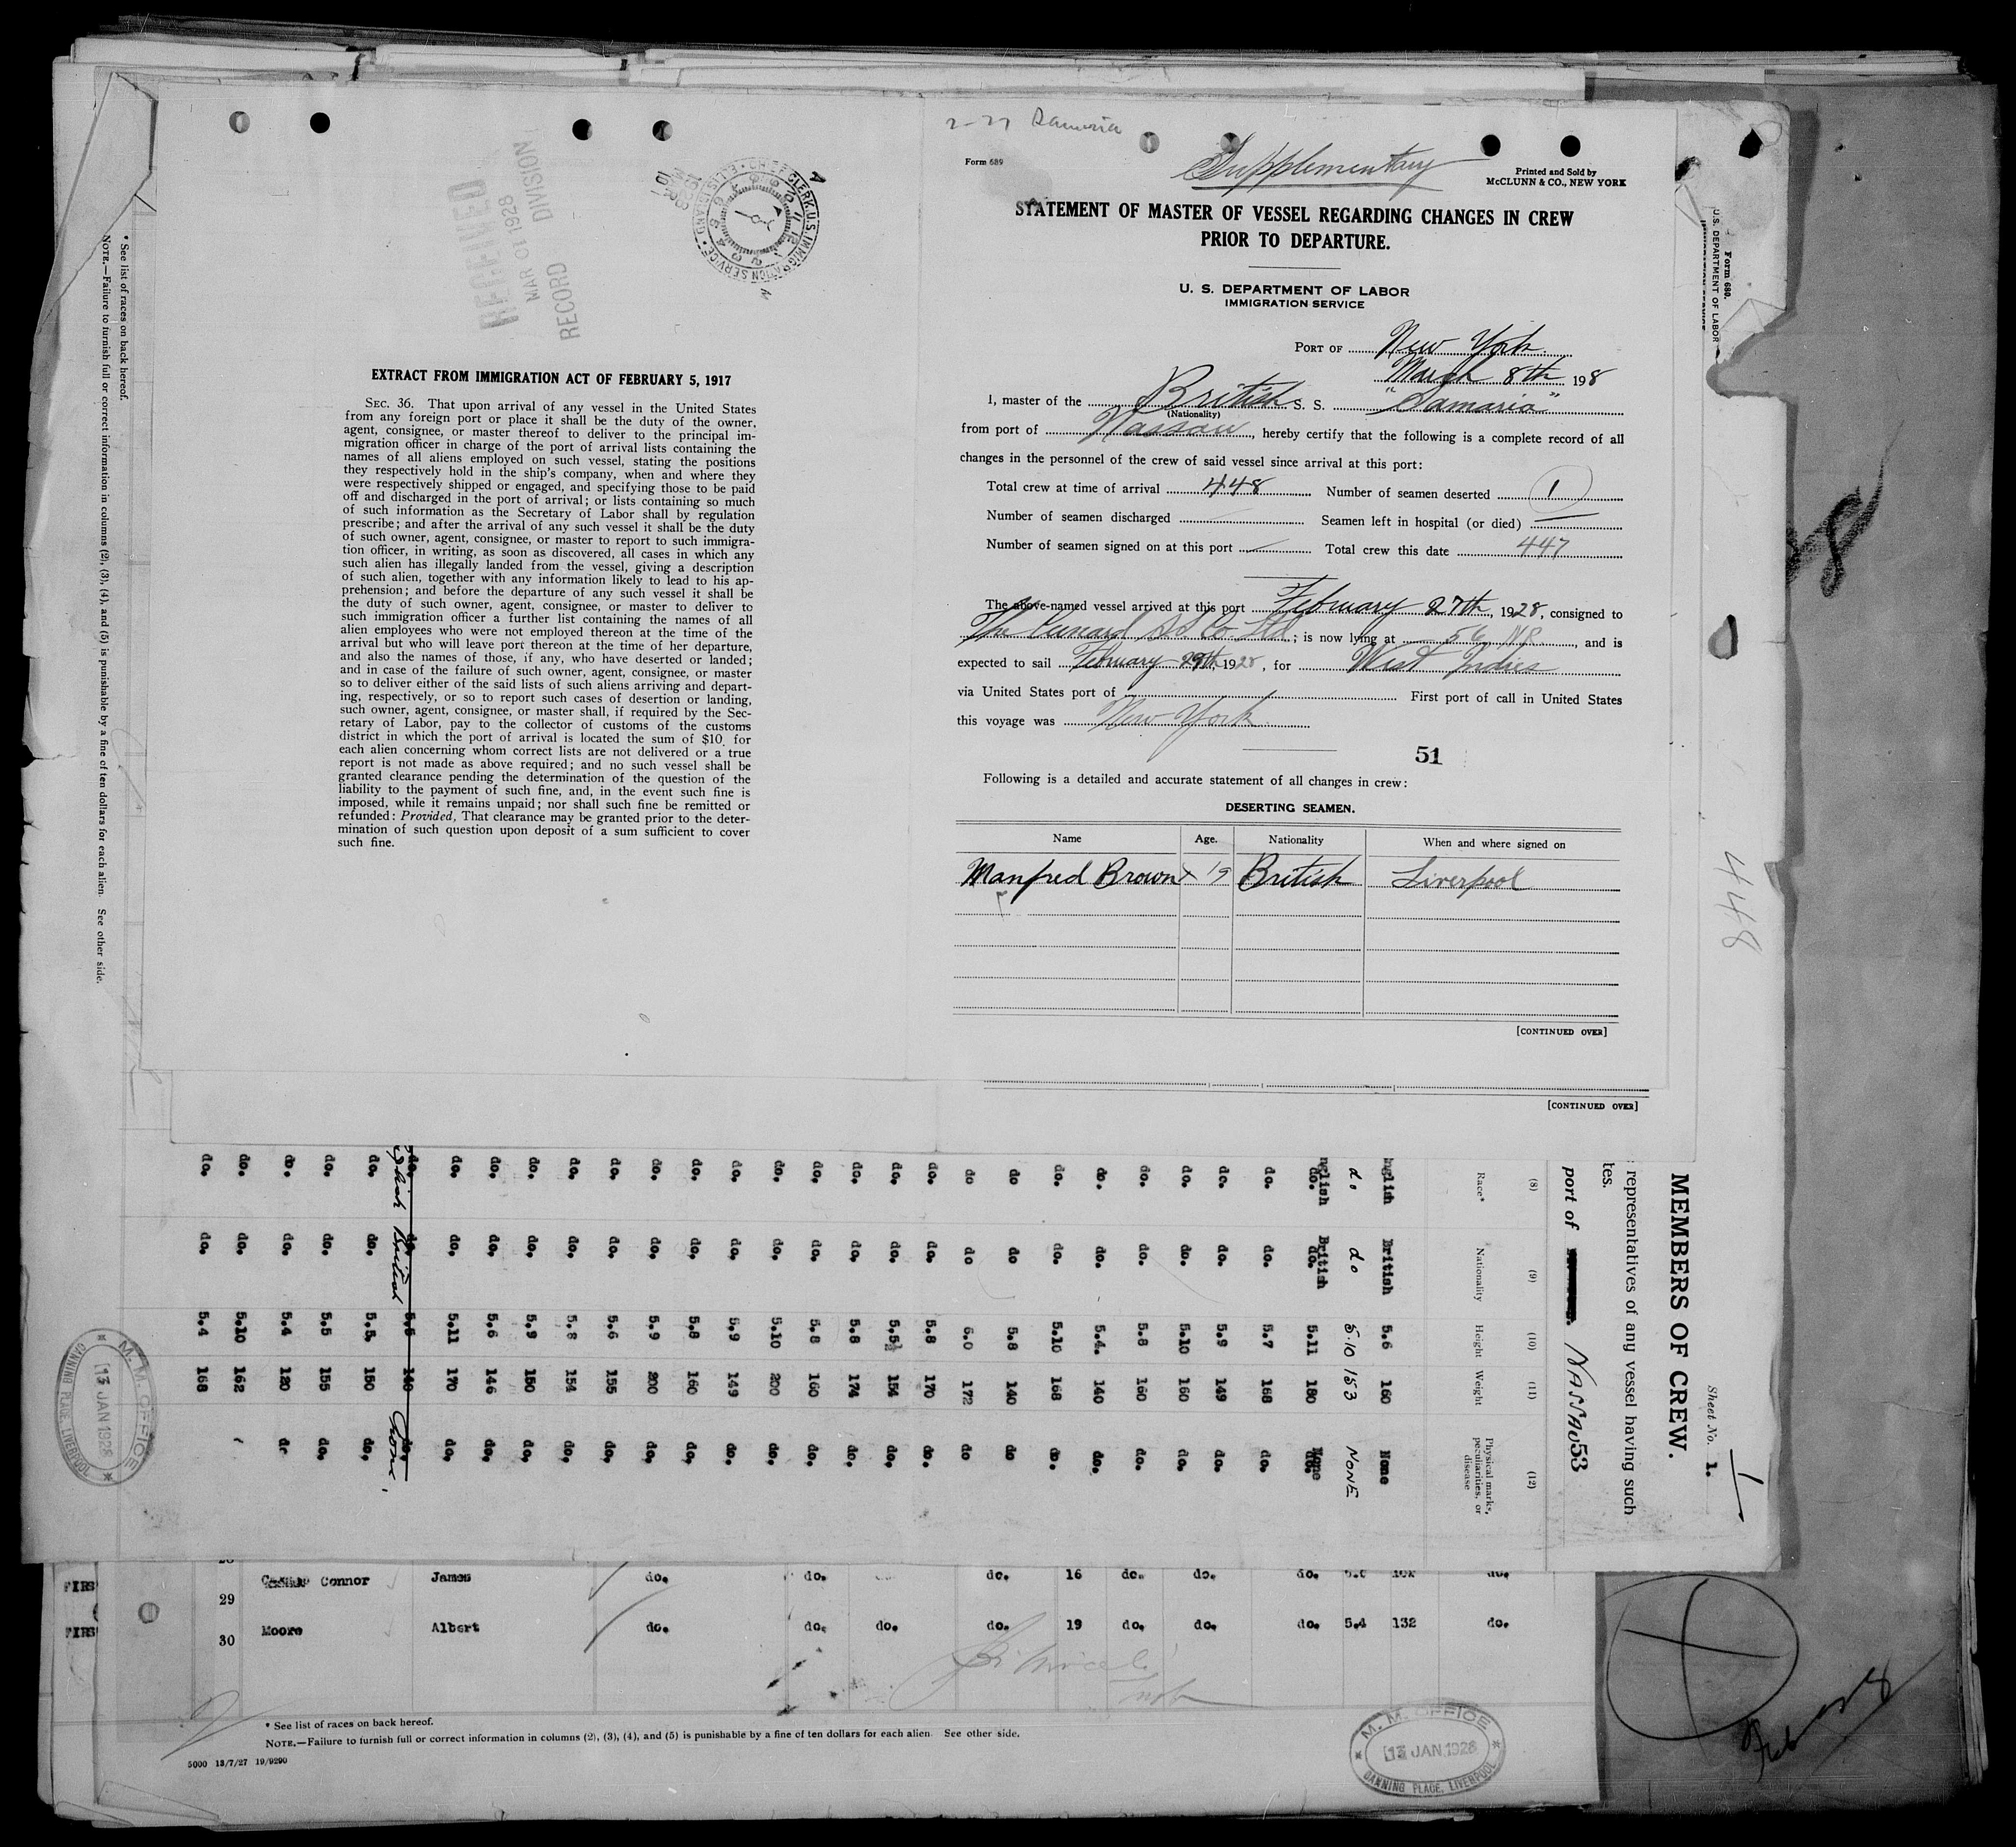 2-27 Samaria
Form 689
Supplementary
Printed and Sold by
McCLUNN & CO., NEW YORK
STATEMENT OF MASTER OF VESSEL REGARDING CHANGES IN CREW
PRIOR TO DEPARTURE.
U. S. DEPARTMENT OF LABOR
IMMIGRATION SERVICE
PORT OF New York
March 8th 198
I, master of the British S. S. "Samaria"
(Nationality)
from port of Nassau, hereby certify that the following is a complete record of all
changes in the personnel of the crew of said vessel since arrival at this port:
Total crew at time of arrival 448 Number of seamen deserted 1
Number of seamen discharged Seamen left in hospital (or died) —
Number of seamen signed on at this port Total crew this date 447
The above-named vessel arrived at this port February 27th, 1928, consigned to
The Cunard S.S. Co. Ltd; is now lying at 56 NR, and is
expected to sail February 29th, 1928, for West Indies
via United States port of First port of call in United States
this voyage was New York
51
Following is a detailed and accurate statement of all changes in crew:
DESERTING SEAMEN.
Name Age. Nationality When and where signed on
Manfred Brown x 19 British Liverpool
[CONTINUED OVER]
[CONTINUED OVER]
RECEIVED
MAR 1928
RECORD DIVISION
CHIEF CLERK, U.S. IMMIGRATION SERVICE ELLIS ISLAND
EXTRACT FROM IMMIGRATION ACT OF FEBRUARY 5, 1917
SEC. 36. That upon arrival of any vessel in the United States
from any foreign port or place it shall be the duty of the owner,
agent, consignee, or master thereof to deliver to the principal im-
migration officer in charge of the port of arrival lists containing the
names of all aliens employed on such vessel, stating the positions
they respectively hold in the ship's company, when and where they
were respectively shipped or engaged, and specifying those to be paid
off and discharged in the port of arrival; or lists containing so much
of such information as the Secretary of Labor shall by regulation
prescribe; and after the arrival of any such vessel it shall be the duty
of such owner, agent, consignee, or master to report to such immigra-
tion officer, in writing, as soon as discovered, all cases in which any
such alien has illegally landed from the vessel, giving a description
of such alien, together with any information likely to lead to his ap-
prehension; and before the departure of any such vessel it shall be
the duty of such owner, agent, consignee, or master to deliver to
such immigration officer a further list containing the names of all
alien employees who were not employed thereon at the time of the
arrival but who will leave port thereon at the time of her departure,
and also the names of those, if any, who have deserted or landed;
and in case of the failure of such owner, agent, consignee, or master
so to deliver either of the said lists of such aliens arriving and depart-
ing, respectively, or so to report such cases of desertion or landing,
such owner, agent, consignee, or master shall, if required by the Sec-
retary of Labor, pay to the collector of customs of the customs
district in which the port of arrival is located the sum of $10. for
each alien concerning whom correct lists are not delivered or a true
report is not made as above required; and no such vessel shall be
granted clearance pending the determination of the question of the
liability to the payment of such fine, and, in the event such fine is
imposed, while it remains unpaid; nor shall such fine be remitted or
refunded: Provided, That clearance may be granted prior to the deter-
mination of such question upon deposit of a sum sufficient to cover
such fine.
* See list of races on back hereof.
NOTE.—Failure to furnish full or correct information in columns (2), (3), (4), and (5) is punishable by a fine of ten dollars for each alien. See other side.
Form 680.
U. S. DEPARTMENT OF LABOR
448
Sheet No. 1.
1
MEMBERS OF CREW.
representatives of any vessel having such
tes.
port of NASSAU 53
(8) (9) (10) (11) (12)
Race* Nationality Height Weight Physical marks, peculiarities, or disease
nglish British 5.6 160 None
do do 5.10 153 NONE
nglish British 5.11 180 None
do. do. 5.7 168 do.
do. do. 5.9 149 do.
do. do. 5.10 160 do.
do. do. 5.8 160 do.
do. do. 5.4. 140 do.
do. do. 5.10 168 do.
do do 5.8 140 do
do do 6.0 172 do
do. do. 5.8 170 do.
do. do. 5.5½ 154 do.
do. do. 5.8 174 do.
do. do. 5.8 160 do.
do. do. 5.10 200 do.
do. do. 5.9 149 do.
do. do. 5.8 160 do.
do. do. 5.9 200 do.
do. do. 5.6 155 do.
do. do. 5.8 154 do.
do. do. 5.9 150 do.
do. do. 5.6 146 do.
do. do. 5.11 170 do.
do. do. 5.5 140 do.
British None
do. do. 5.5. 150 do.
do. do. 5.5 155 do.
do. do. 5.4 120 do
do. do. 5.10 162
do. do. 5.4 168
M. M. OFFICE
13 JAN 1928
CANNING PLACE, LIVERPOOL
FIRS 29 Connor James do. do. do. 16 do. do. do. do.
FIRS 30 Moore Albert do. do. do. do. 19 do. do. do. 5.4 132 do.
* See list of races on back hereof.
NOTE.—Failure to furnish full or correct information in columns (2), (3), (4), and (5) is punishable by a fine of ten dollars for each alien. See other side.
5000 13/7/27 19/9290
M. M. OFFICE
13 JAN 1928
CANNING PLACE, LIVERPOOL